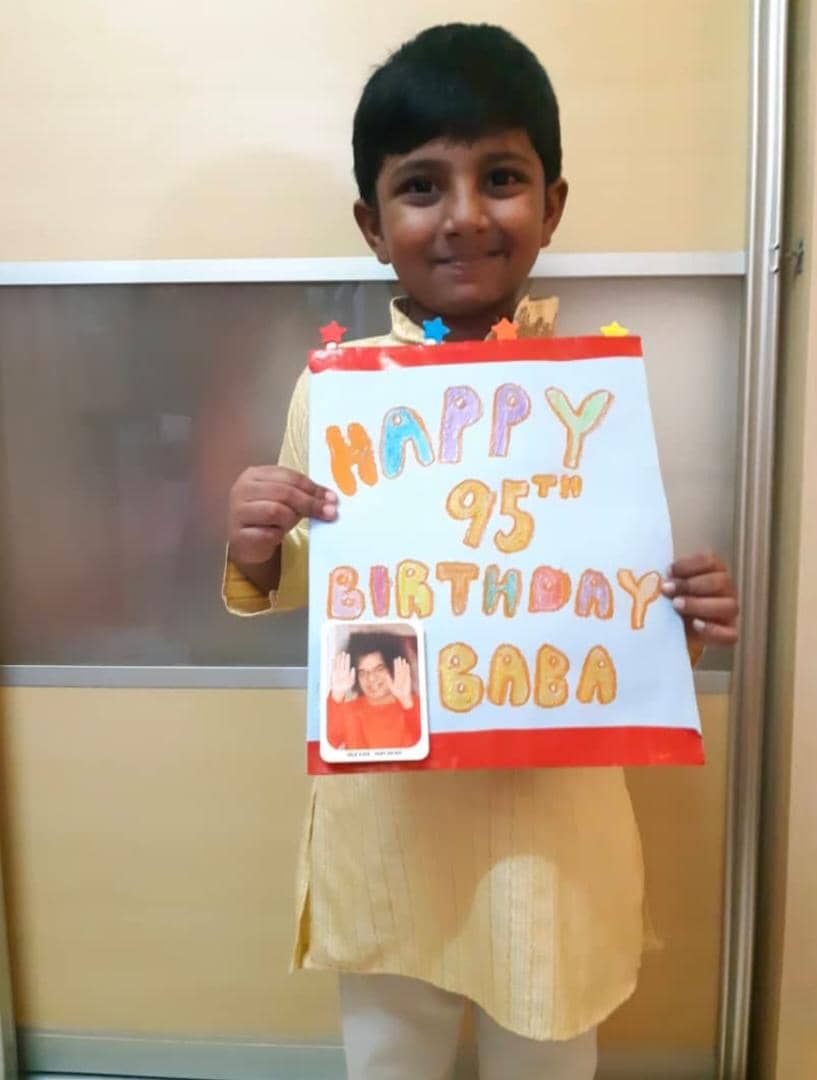 HAPPY
95TH
BIRTHDAY
BABA